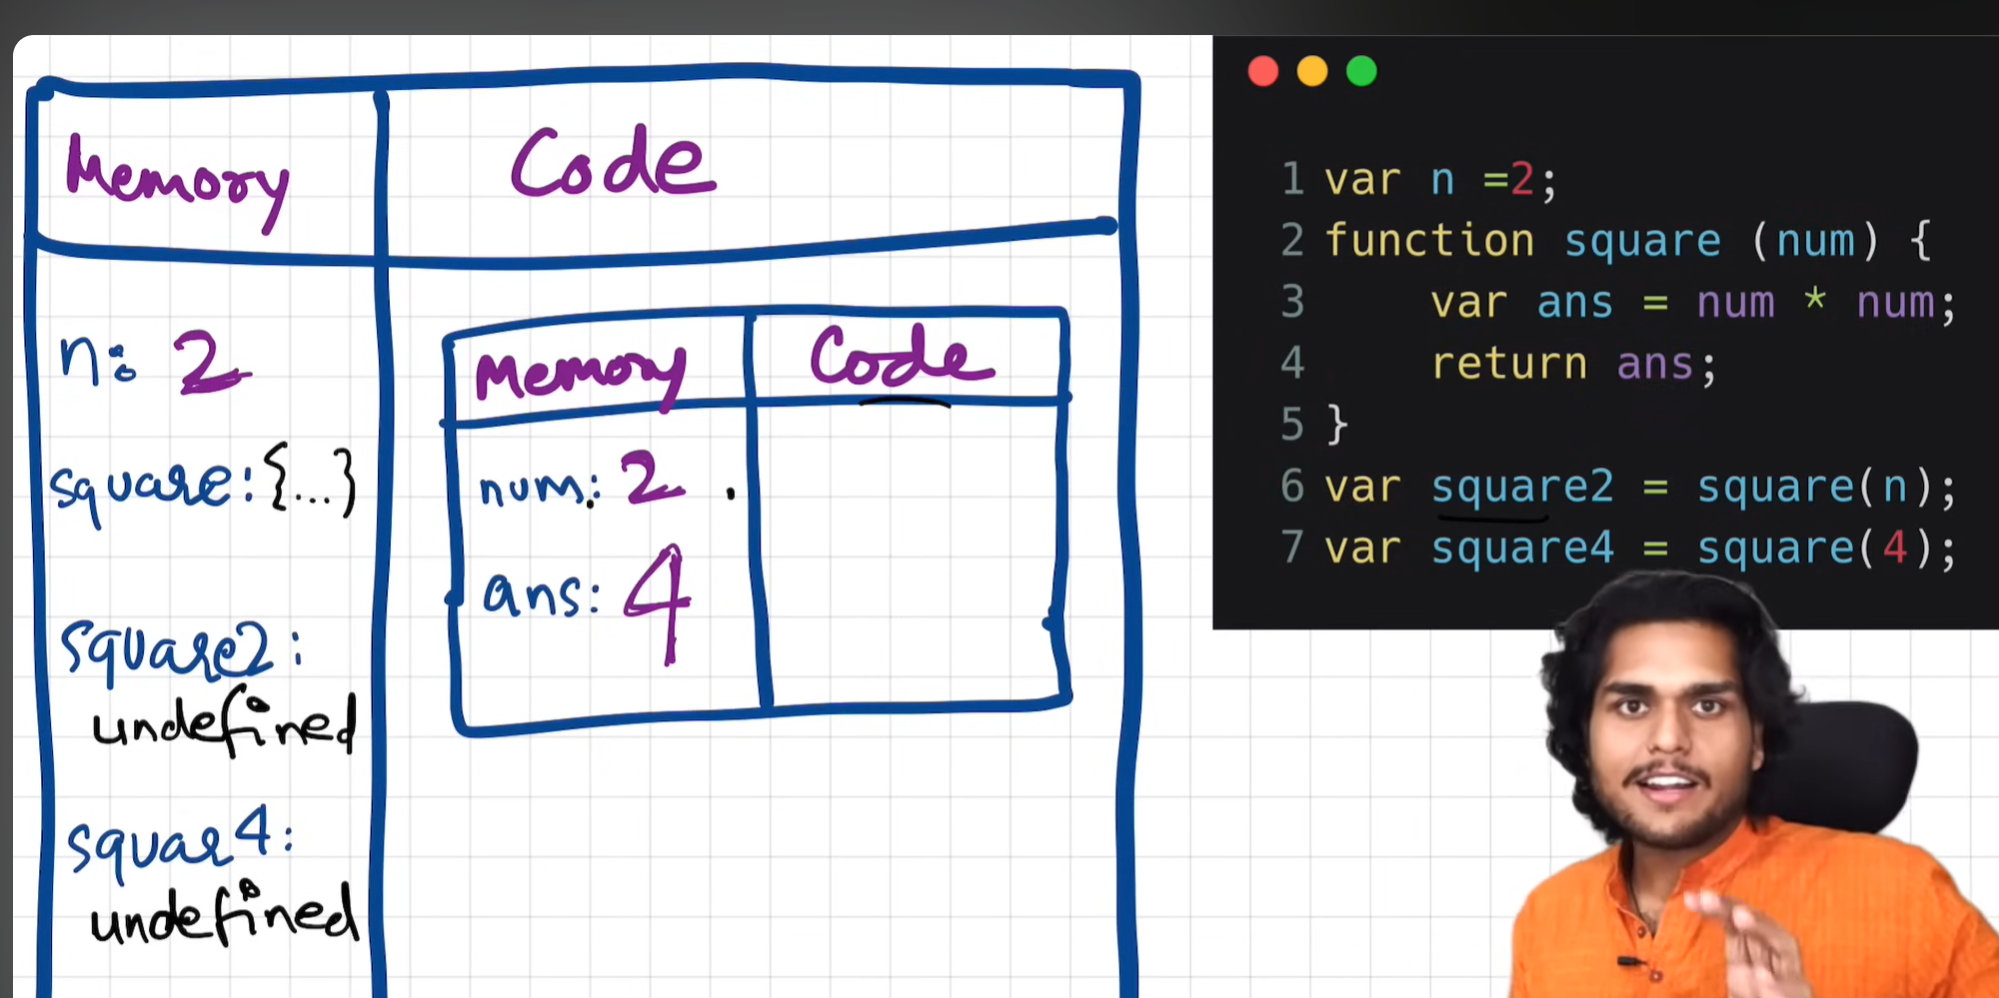 Memory
Code
n: 2
square: {...}
square2:
undefined
squar4:
undefined
Memory
Code
num: 2
ans: 4
1 var n =2;
2 function square (num) {
3 var ans = num * num;
4 return ans;
5 }
6 var square2 = square(n);
7 var square4 = square(4);